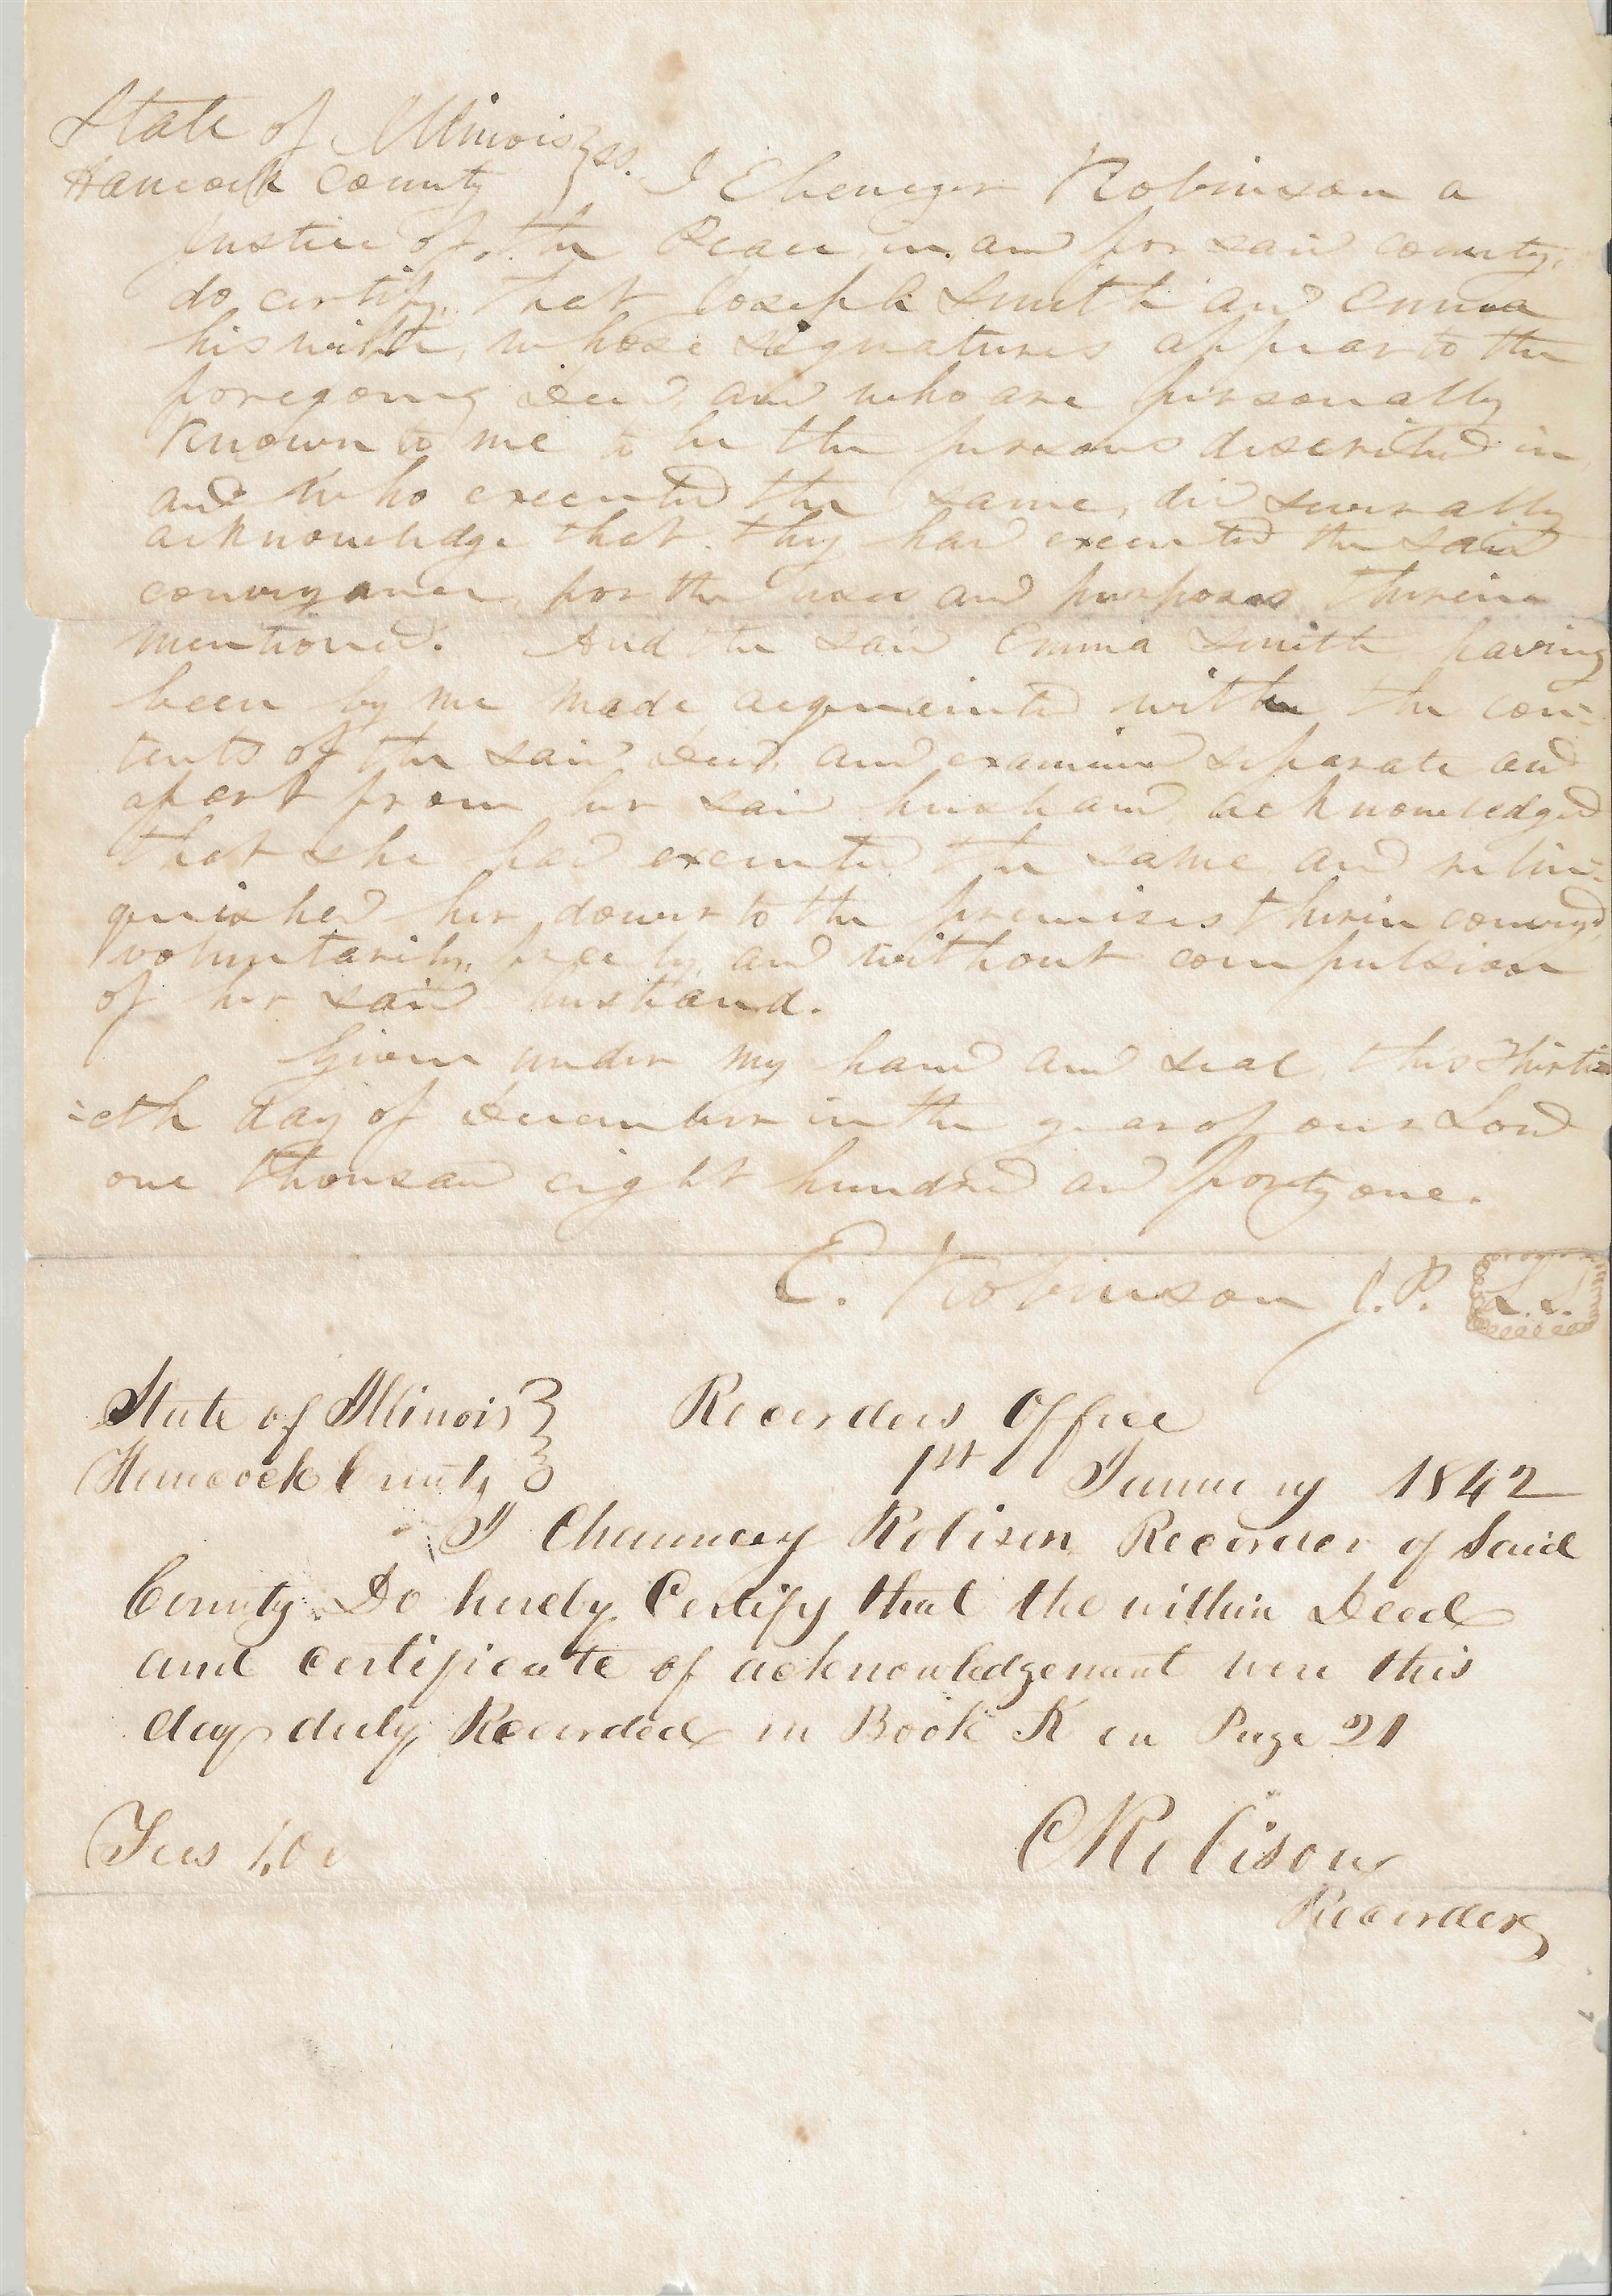 State of Illinois } ss.
Hancock County } I Ebenezer Robinson a
Justice of the Peace in and for said county,
do certify that Joseph Smith and Emma
his wife, whose signatures appear to the
foregoing Deed and who are personally
known to me to be the persons described in
and who executed the same, did severally
acknowledge that they had executed the said
conveyance, for the uses and purposes therein
mentioned. And the said Emma Smith having
been by me made acquainted with the con-
tents of the said Deed, and examined separate and
apart from her said husband, acknowledged
that she had executed the same and relin-
quished her dower to the premises therein conveyed,
voluntarily, freely, and without compulsion
of her said husband.
Given under my hand and seal, this Thirti-
-eth day of December in the year of our Lord
one thousand eight hundred and forty one.
E. Robinson J.P. L.S.
State of Illinois } Recorders Office
Hancock County } 1st January 1842
I Chauncey Robison Recorder of Said
County Do hereby Certify that the within Deed
and certificate of acknowledgement were this
day duly Recorded in Book K on Page 21
Fees 1,00
C Robison
Recorder